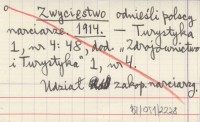 Zwycięstwo odnieśli polscy
narciarze 1914. — Turystyka
1, nr 4: 48, dod. „Zdrojownictwo
i Turystyka" 1, nr 4.
Udział zakop. narciarzy.